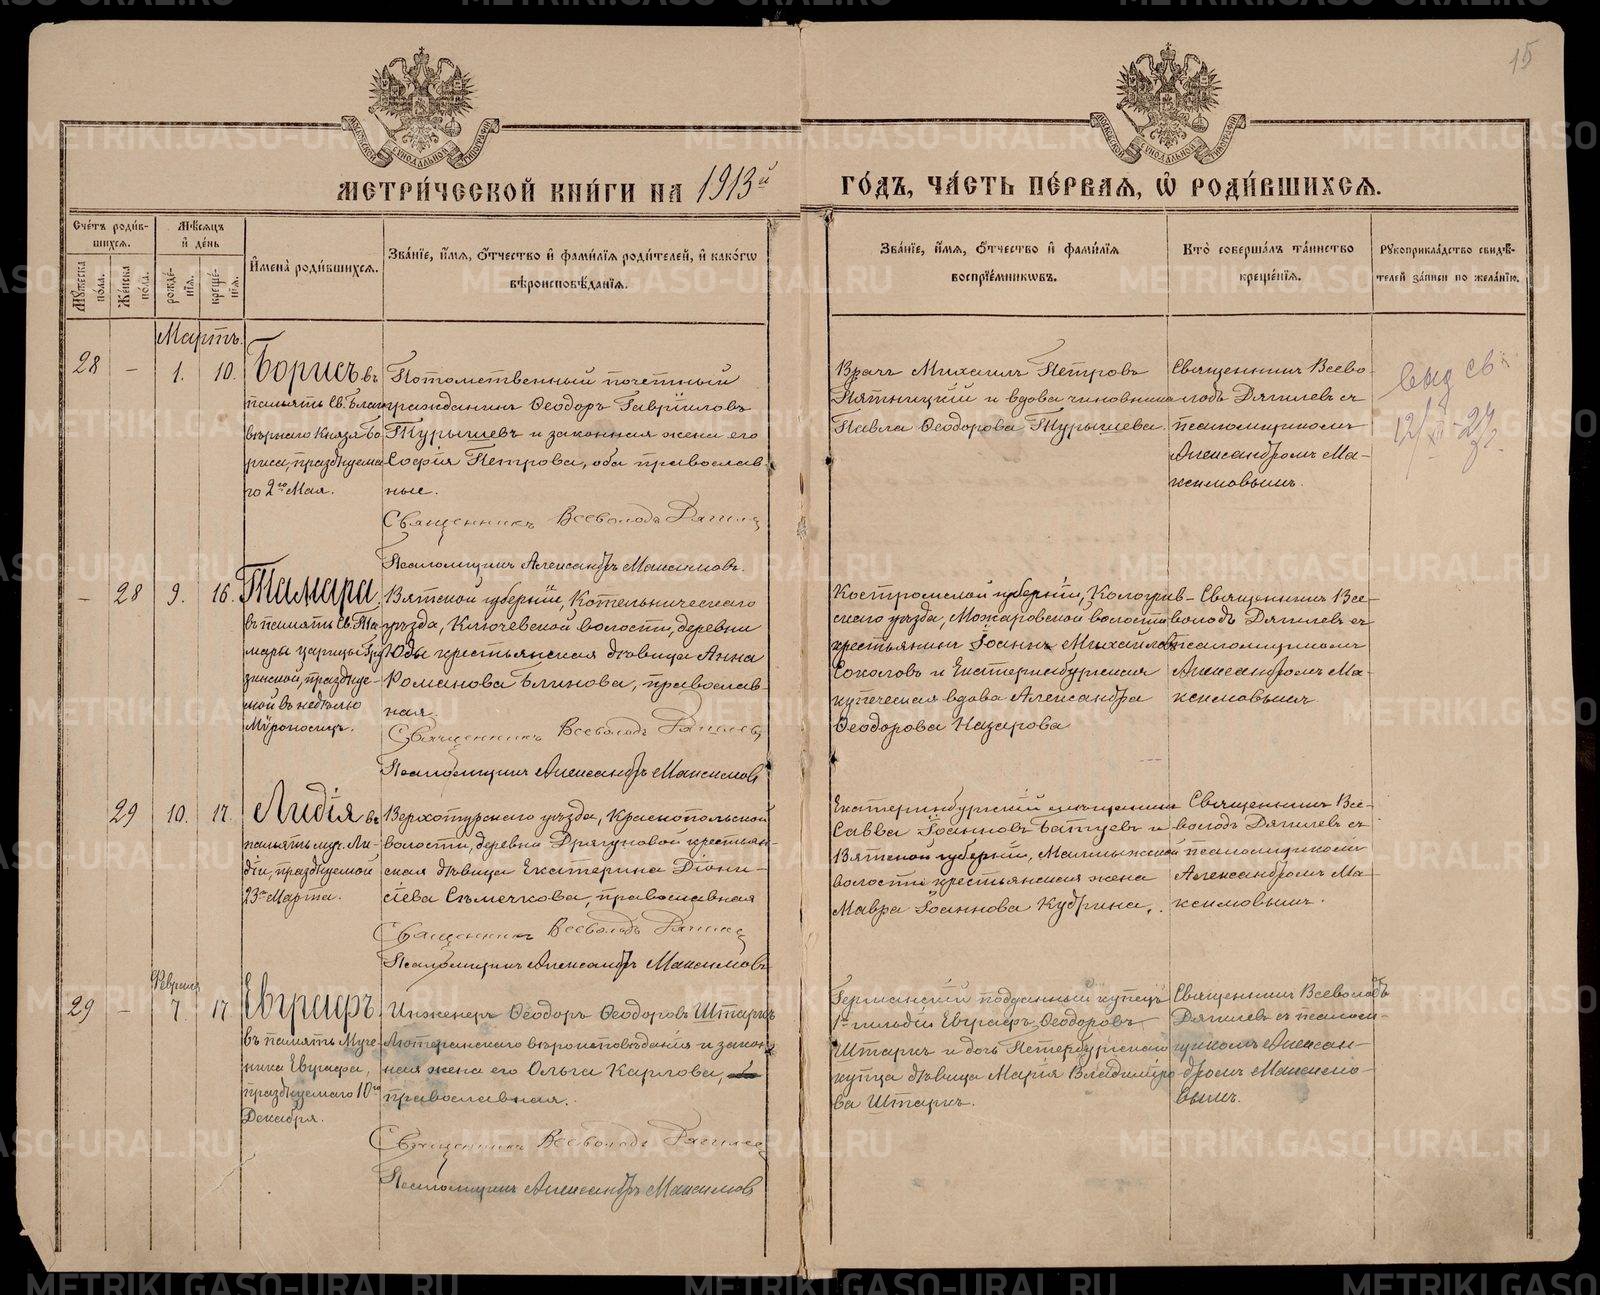 15
МОСКОВСКОЙ СѴНОДАЛЬНОЙ ТИПОГРАФІИ
МОСКОВСКОЙ СѴНОДАЛЬНОЙ ТИПОГРАФІИ
МЕТРИ́ЧЕСКОЙ КНИ́ГИ НА 1913й
ГО́ДЪ, ЧА́СТЬ ПЕ́РВАЯ, Ѡ҆ РОДИ́ВШИХСЯ.
Сче́тъ роди́в-
шихся.
Мꙋ́жеска по́ла.
Же́нска по́ла.
Мѣ́сяцъ
и҆ де́нь
рожде́-
нїя.
креще́-
нїя.
И҆мена̀ роди́вшихся.
Зва́нїе, и҆́мя, ѻ҆́тчество и҆ фами́лїя роди́телей, и҆ како́гѡ
вѣроисповѣ́данїя.
Зва́нїе, и҆́мя, ѻ҆́тчество и҆ фами́лїя
воспрїе́мникѡвъ.
Кто̀ соверша́лъ та́инство
креще́нїя.
Рꙋкоприкла́дство свидѣ́-
телей за́писи по жела́нїю.
Мартъ.
28 – 1. 10.
Борисъ въ
память Св. Благо
вѣрнаго Князя Бо
риса, празднуема
го 2го Мая.
Потомственный почетный
гражданинъ Ѳеодоръ Гаврииловъ
Турышевъ и законная жена его
Софія Петрова, оба православ-
ные.
Священникъ Всеволодъ Дягилев
Псаломщикъ Александръ Максимовъ.
Врачъ Михаилъ Петровъ
Пятницкій и вдова чиновника
Павла Ѳеодорова Турышева.
Священникъ Всево
лодъ Дягилевъ съ
псаломщикомъ
Александромъ Ма-
ксимовымъ.
выд св
– 28 9. 16.
Тамара,
въ память Св. Та
мары царицы Гру
зинской, праздуе-
мой въ недѣлю
Мѵроносицъ.
Вятской губерніи, Котельническаго
уѣзда, Ключевской волости, деревни
Юды крестьянская дѣвица Анна
Романова Блинова, православ-
ная.
Священникъ Всеволодъ Дягилев
Псаломщикъ Александръ Максимовъ
Костромской губерніи, Кологрив-
скаго уѣзда, Можаровской волости
крестьянинъ Іоаннъ Михайловъ
Соколовъ и Екатеринбургская
купеческая вдова Александра
Ѳеодорова Назарова
Священникъ Все-
володъ Дягилевъ съ
псаломщикомъ
Александромъ Ма-
ксимовымъ.
29 10. 17.
Лидія въ
память муч. Ли-
діи, празднуемой
23го Марта.
Верхотурскаго уѣзда, Краснопольской
волости, деревни Дрягуновой крестьян-
ская дѣвица Екатерина Діони-
сіева Съмечкова, православная
Священникъ Всеволодъ Дягилев
Псаломщикъ Александръ Максимовъ
Екатеринбургскій мѣщанинъ
Савва Іоанновъ Батуевъ и
Вятской губерніи, Малмыжской
волости крестьянская жена
Мавра Іоаннова Кудрина.
Священникъ Все-
володъ Дягилевъ съ
псаломщикомъ
Александромъ Ма-
ксимовымъ.
Февраля
29 – 7. 17
Евграфъ
въ память Муче-
ника Евграфа,
празднуемаго 10го
Декабря.
Инженеръ Ѳеодоръ Ѳеодоровъ Штаркъ
Лютеранскаго вѣроисповѣданія и закон-
ная жена его Ольга Карлова,
православная.
Священникъ Всеволодъ Дягилев
Псаломщикъ Александръ Максимовъ
Германскій подданный купецъ
1й гильдіи Евграфъ Ѳеодоровъ
Штаркъ и дочь Петербургскаго
купца дѣвица Марія Владиміро
ва Штаркъ.
Священникъ Всеволодъ
Дягилевъ съ псалом-
щикомъ Алексан-
дромъ Максимо-
вымъ.
METRIKI.GASO-URAL.RU